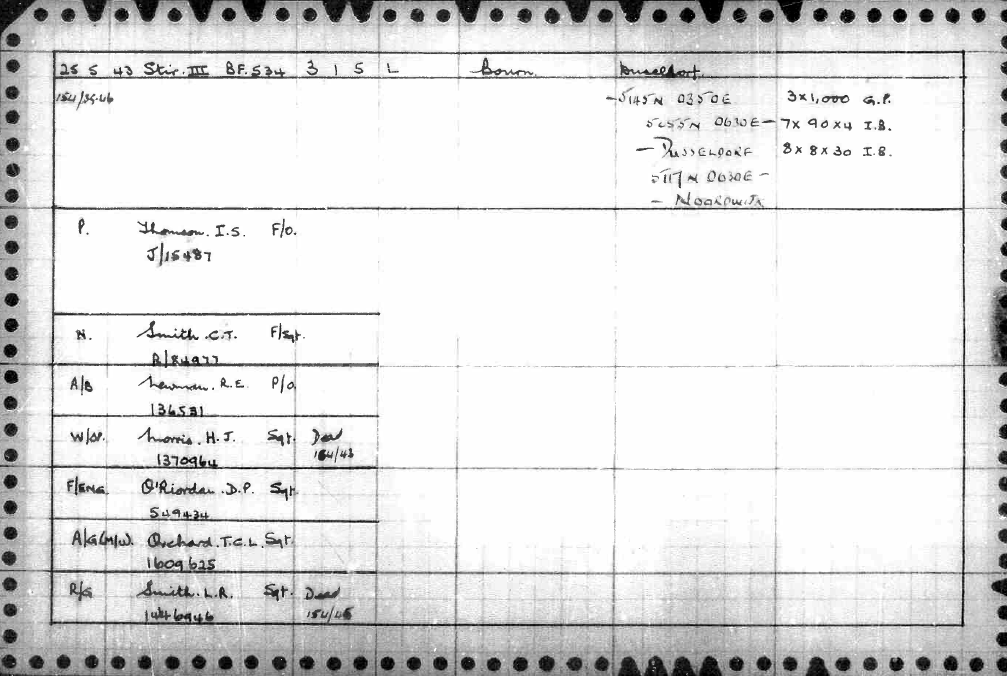 25 5 43 Stir. III BF.534 3 1 5 L Bourn. Dusseldorf.
154/35.46 – 5145N 0350E 3x1,000 G.P.
5055N 0630E – 7x 90x4 I.B.
– DUSSELDORF 8x 8x30 I.B.
5117N 0630E –
– NOORDWIJK
P. Thomson. I.S. F/O.
J/15487
N. Smith. C.T. F/Sgt.
R/84977
A/B Newman. R.E. P/O.
136531
W/OP. Morris. H.J. Sgt. Dead
1370964 154/43
F/ENG. O'Riordan. D.P. Sgt.
549434
A/G(M/U). Orchard. T.C.L. Sgt.
1609625
R/G Smith. L.R. Sgt. Dead
1446946 154/45